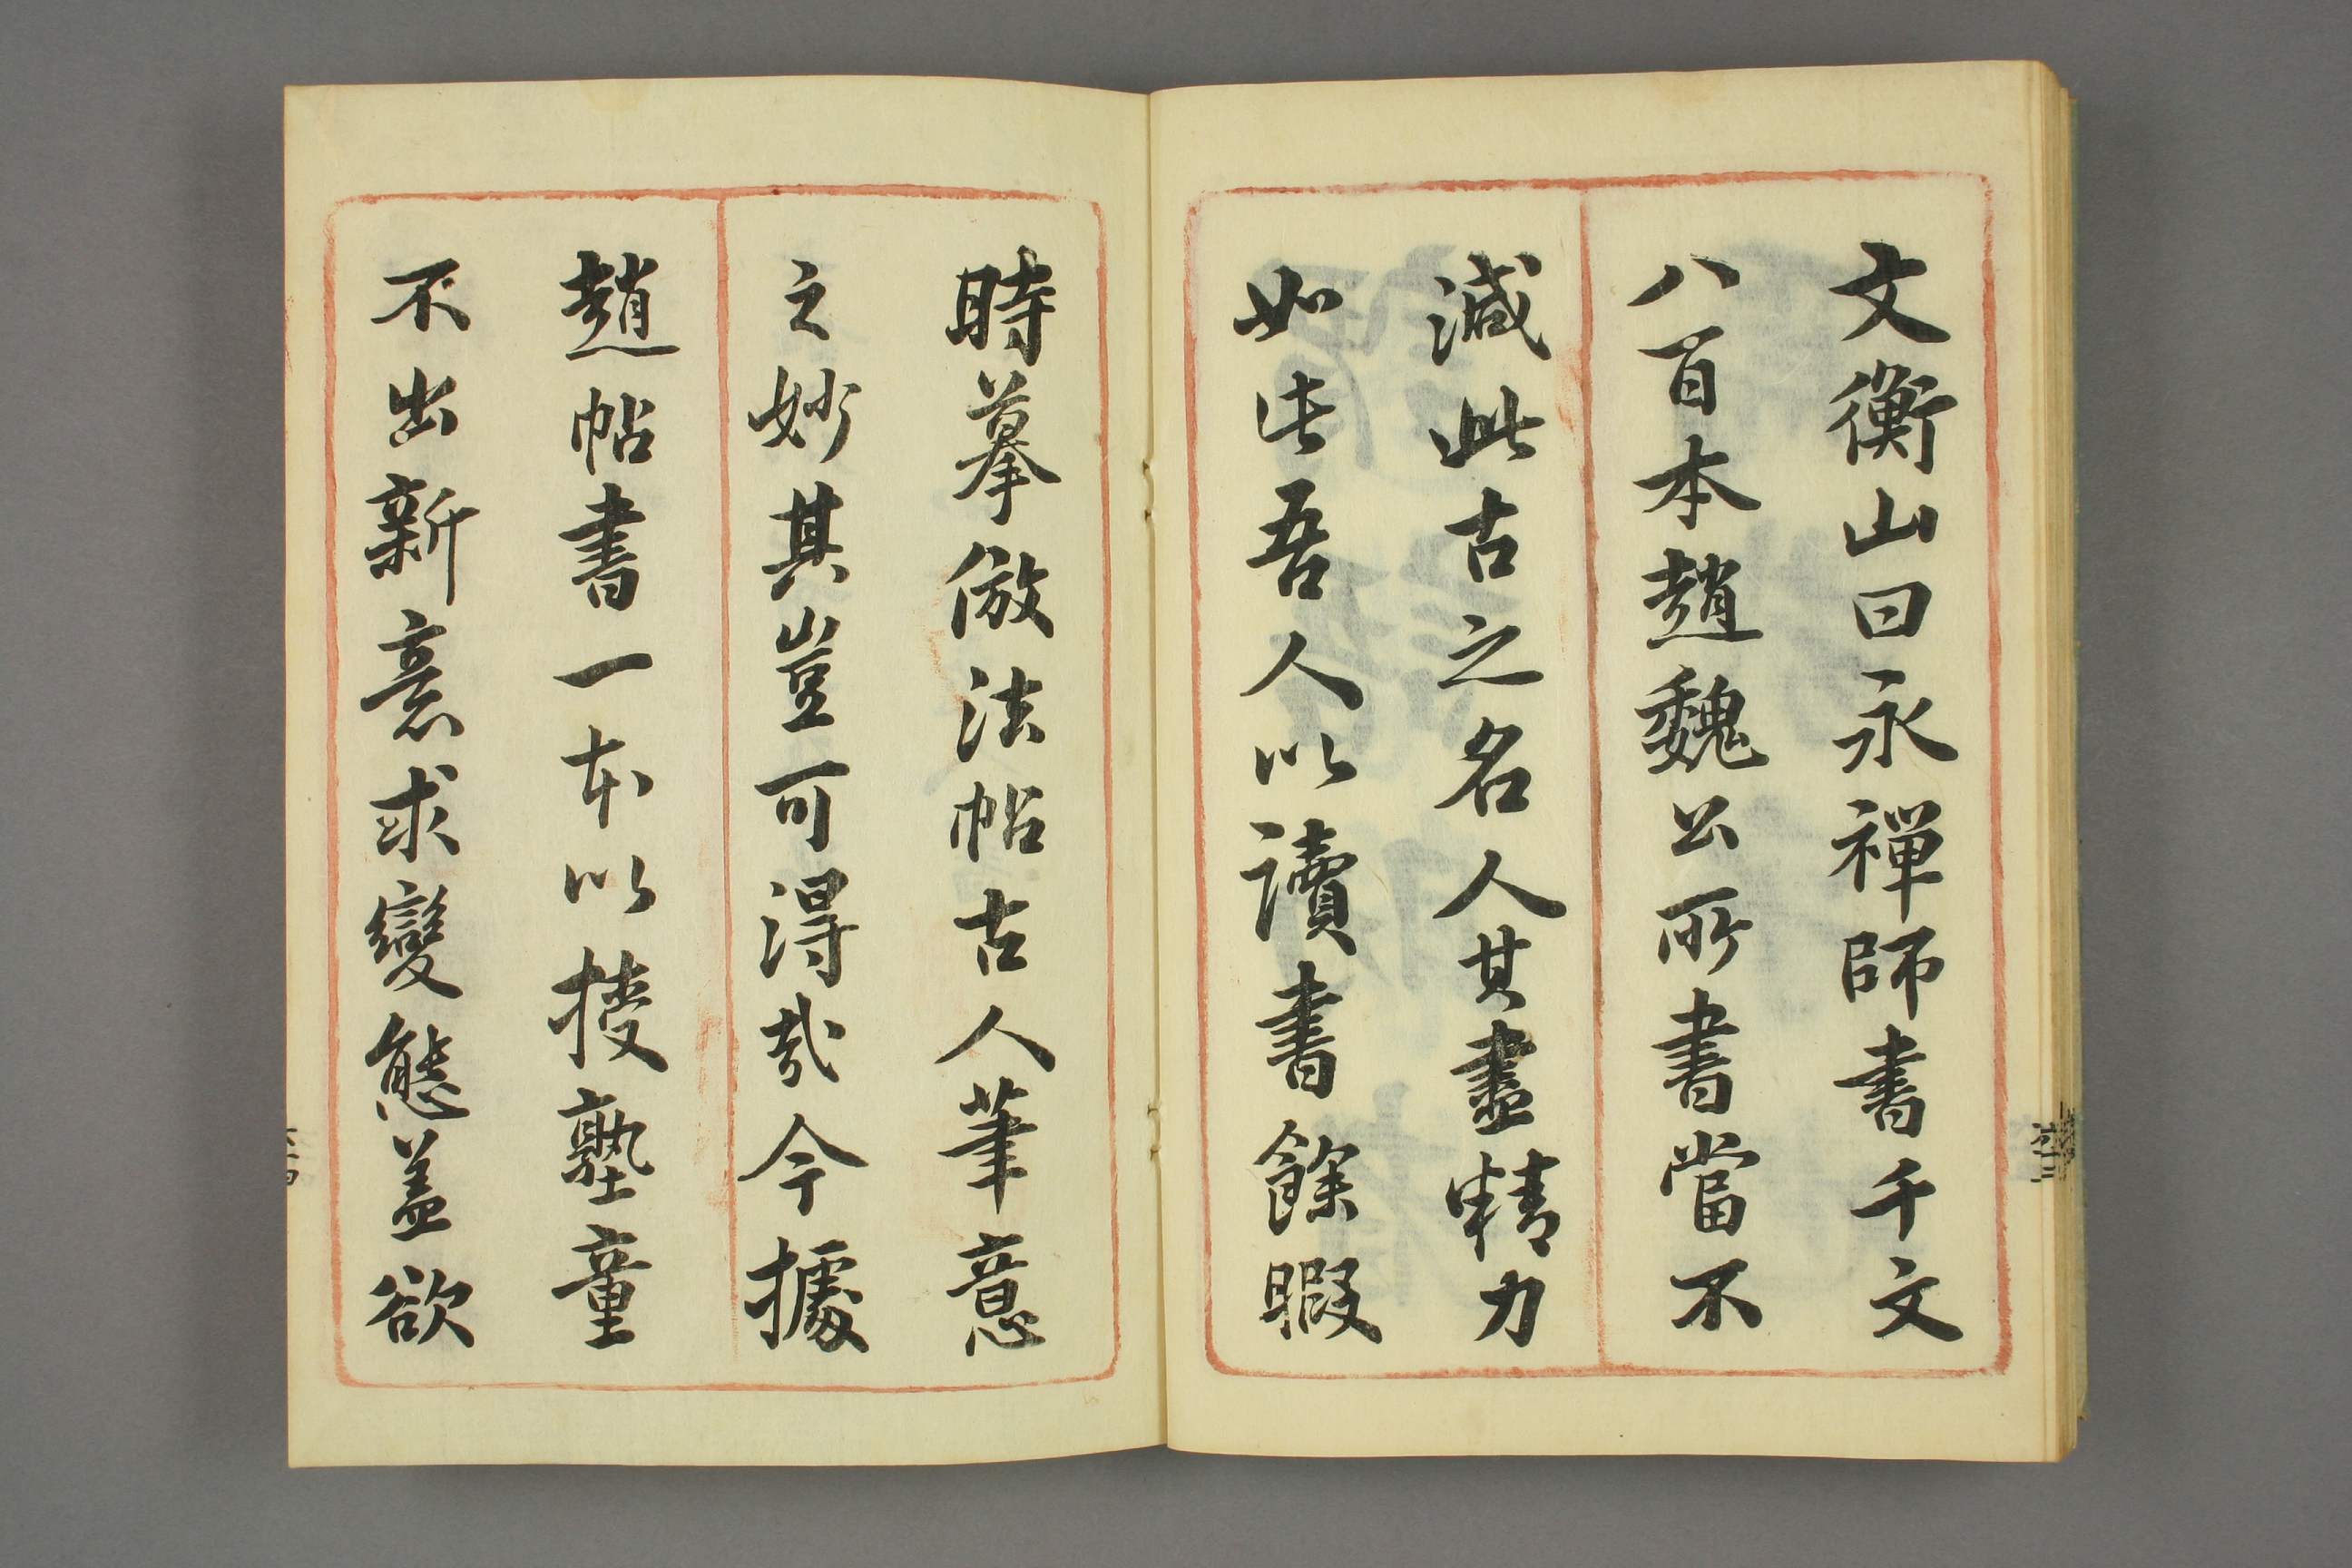 文衡山曰永禅師書千文
八百本趙魏公所書當不
減此古之名人其盡精力
如此吾人以讀書餘暇
時摹倣法帖古人筆意
之妙其豈可得哉今據
趙帖書一本以授塾童
不出新意求變態盖欲